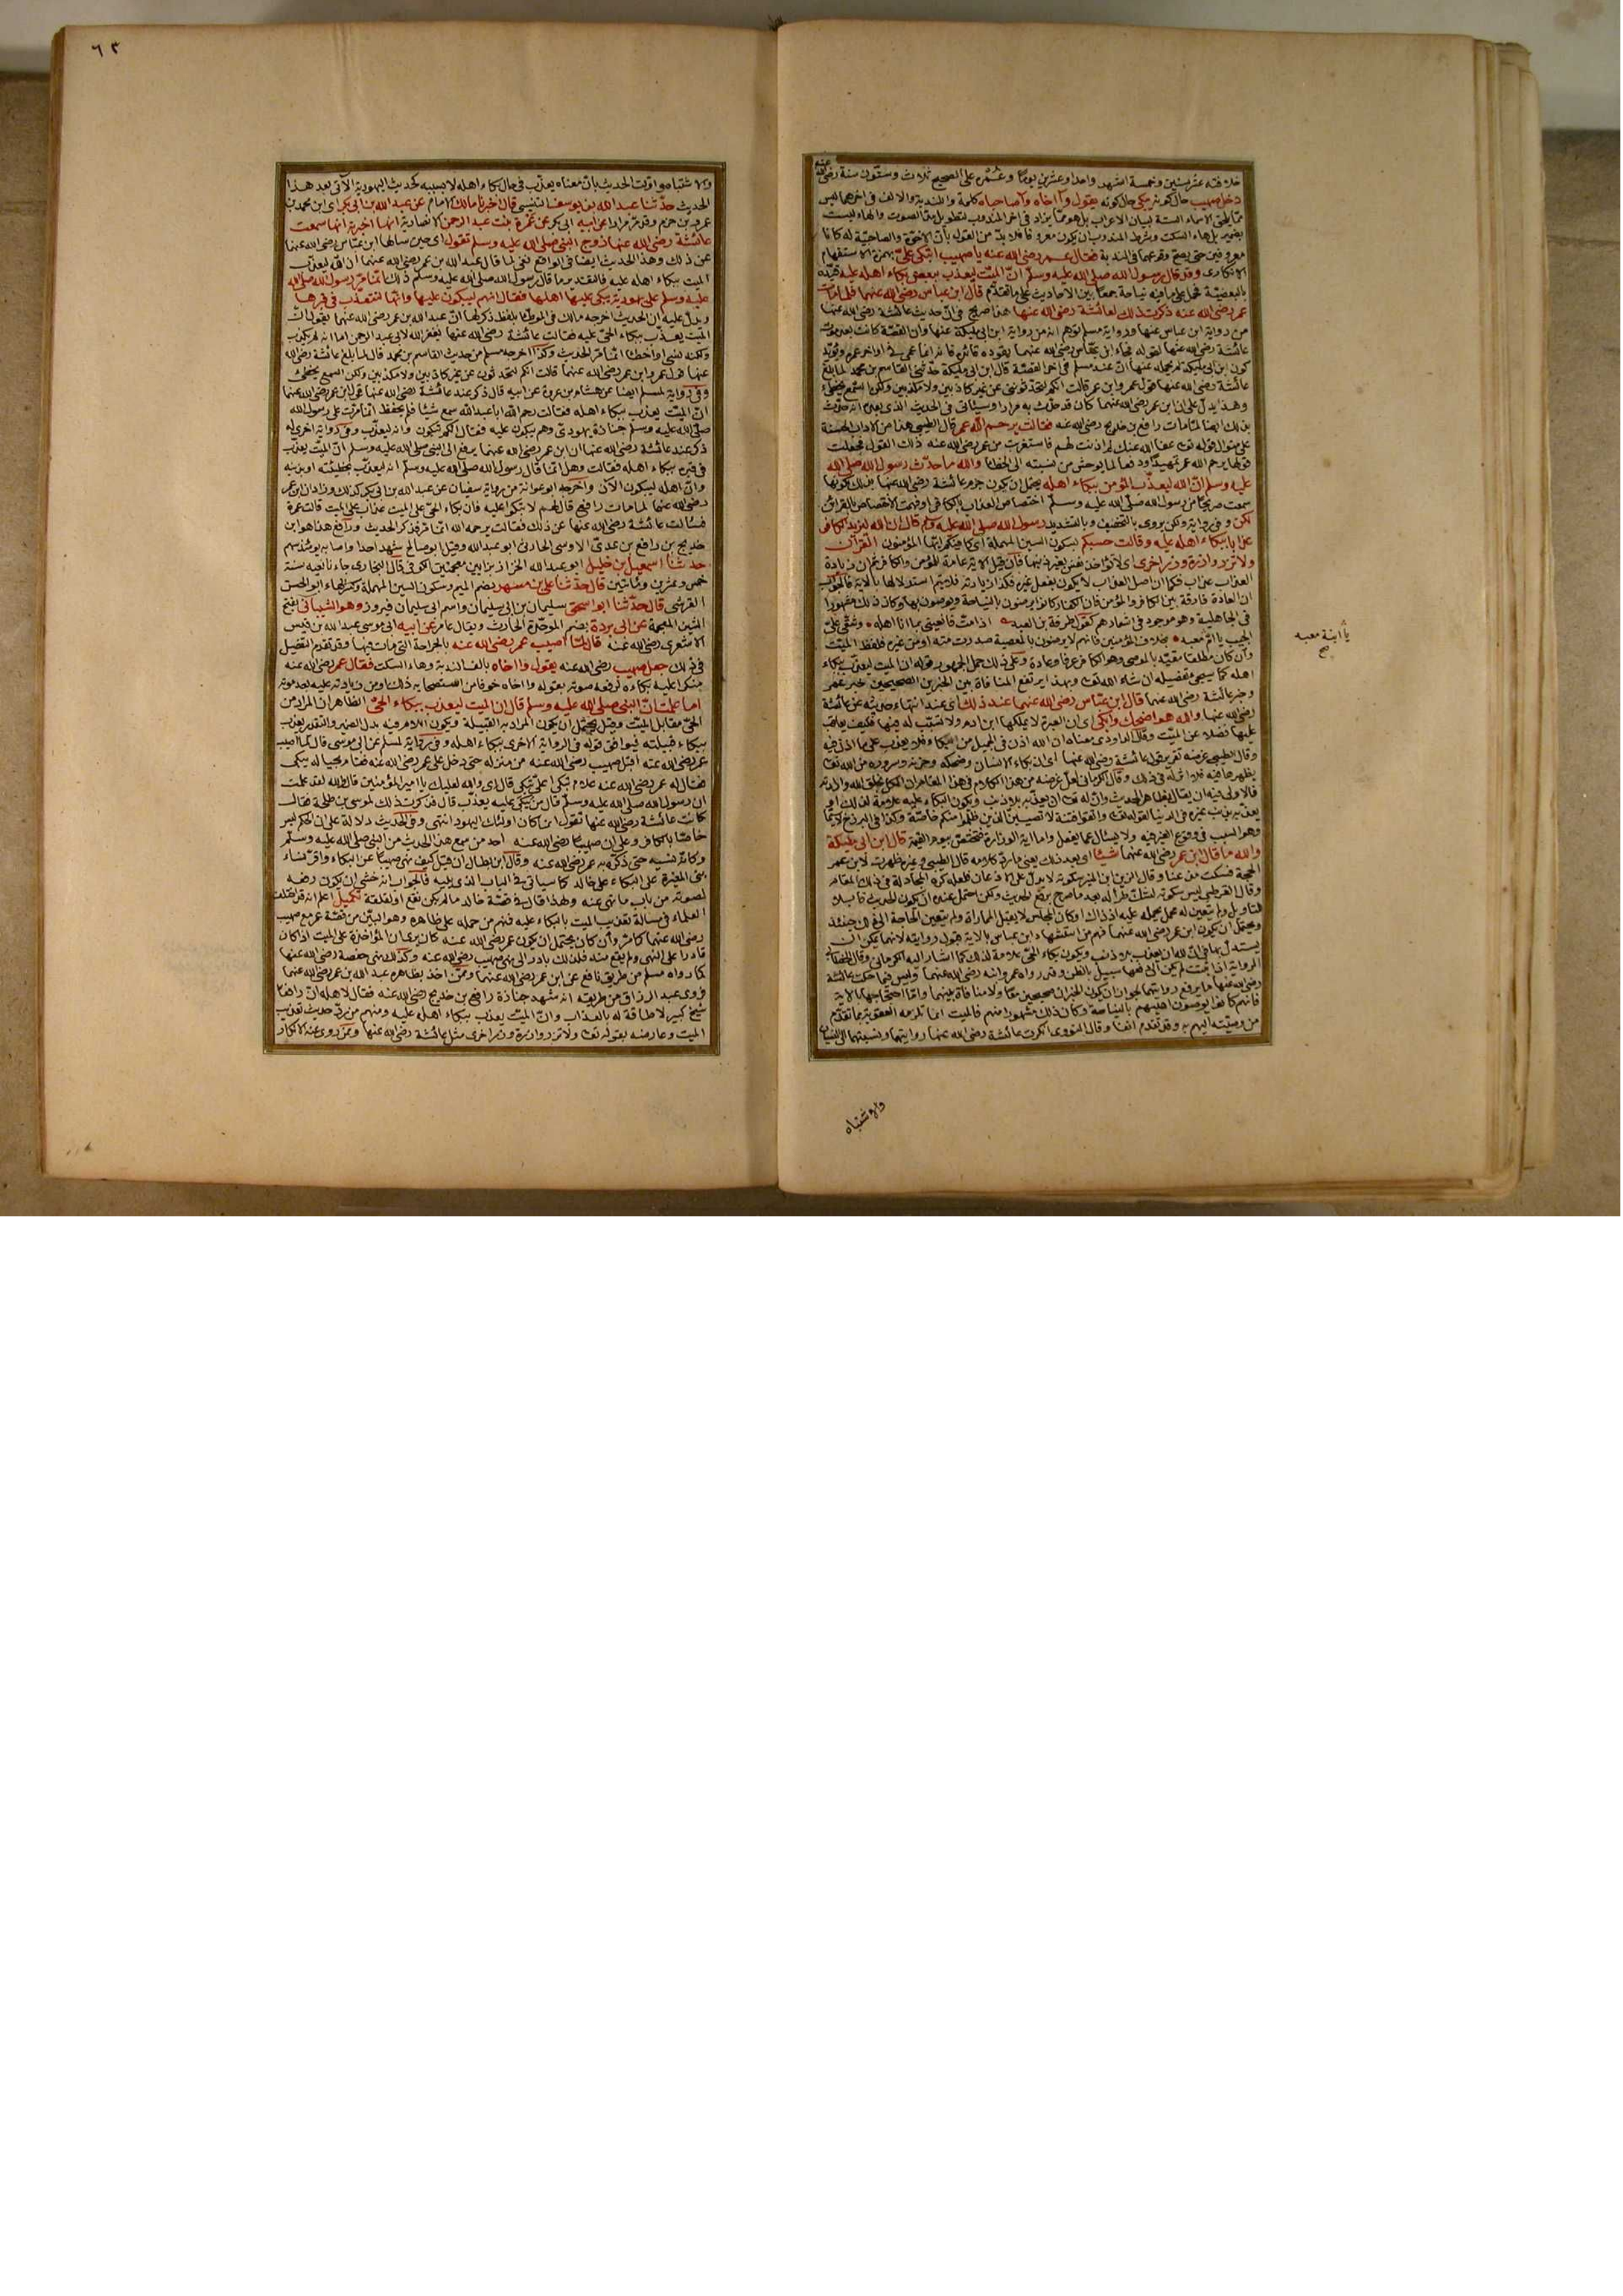 خلافته عشر سنين وخمسة اشهر واحدا وعشرين يوما وعُمُره على الصحيح ثلاث وستون سنة رضي الله عنه
دخل صهيب حال كونه يبكي حال كونه يقول وا اخاه وا صاحباه كلمة وا للندبة والالف في اخرهما ليس
مما يلحق الاسماء الستة لبيان الاعراب بل هو مما يزاد في اخر المندوب لتطويل مد الصوت والهاء ليست
بضمير بل هاء السكت وشرط المندوب ان يكون معروفا فلا بد من القول بأن الاخوة والصاحبية له كانا
معروفين حتى يصح وقوعهما في الندبة فقال عمر رضي الله عنه يا صهيب اتبكي عليّ بهمزة الاستفهام
الانكاري وقد قال رسول الله صلى الله عليه وسلم ان الميت ليعذب ببعض بكاء اهله عليه قيده
بالبعضية فحمل على ما فيه نياحة جمعا بين الاحاديث على ما تقدم قال ابن عباس رضي الله عنهما فلما مات
عمر رضي الله عنه ذكرت ذلك لعائشة رضي الله عنها هذا صريح في ان حديث عائشة رضي الله عنها
من رواية ابن عباس عنها ورواية مسلم توهم انه من رواية ابن ابي مليكة عنها وان القصة كانت بعد موت
عائشة رضي الله عنها لقوله فجاء ابن عباس رضي الله عنهما يقوده قائده فانه انما عمي في اواخر عمره ويؤيد
كون ابن ابي مليكة لم يحمله عنها ان عند مسلم في اخر القصة قال ابن ابي مليكة حدثني القاسم بن محمد لما بلغ
عائشة رضي الله عنها قول عمر وابن عمر قالت انكم لتحدثونني عن غير كاذبين ولا مكذبين ولكن السمع يخطئ
وهذا يدل على ان ابن عمر رضي الله عنهما كان قد حدّث به مرارا وسيأتي في الحديث الذي بعده انه حدّث
بذلك ايضا لما مات رافع بن خديج رضي الله عنه فقالت يرحم الله عمر قال الطيبي هذا من الاداب الحسنة
على منوال قوله تعالى عفا الله عنك لم اذنت لهم فاستغربت من عمر رضي الله عنه ذلك القول فجعلت
قولها يرحم الله عمر تمهيدا ودفعا لما يوحش من نسبته الى الخطأ والله ما حدّث رسول الله صلى الله
عليه وسلم ان الله ليعذّب المؤمن ببكاء اهله يحتمل ان يكون جزم عائشة رضي الله عنها بذلك لكونها
سمعت صريحا من رسول الله صلى الله عليه وسلم اختصاص العذاب بالكافر او فهمت الاختصاص بالقرائن
لكن وفي رواية ولكن يروى بالتخفيف وبالتشديد رسول الله صلى الله عليه وسلم قال ان الله ليزيد الكافر
عذابا ببكاء اهله عليه وقالت حسبكم بسكون السين المهملة اي كافيكم ايها المؤمنون القرآن
ولا تزر وازرة وزر اخرى اي لا تؤاخذ نفس بغير ذنبها فان قيل الاية عامة للمؤمن والكافر ثم ان زيادة
العذاب عذاب فكما ان اصل العذاب لا يكون بفعل غيره فكذا زيادته فلا يتم استدلالها بالاية فالجواب
ان العادة فارقة بين الكافر والمؤمن فان الكفار كانوا يرضون بالنياحة ويوصون بها وكان ذلك مشهورا
في الجاهلية وهو موجود في اشعارهم كقول طرفة بن العبد اذا مت فانعيني بما انا اهله وشقي عليّ
الجيب يا ام معبد بخلاف المؤمنين فانهم لا يرضون بالمعصية صدرت منه او من غيره فلفظ الميت
وان كان مطلقا مقيد بالموصي وهو الكافر عرفا وعادة وعلى ذلك حمل الجمهور قوله ان الميت ليعذب ببكاء
اهله كما سيجيء تفصيله ان شاء الله تعالى وبهذا يرتفع المنافاة بين الخبرين الصحيحين خبر عمر
وخبر عائشة رضي الله عنهما قال ابن عباس رضي الله عنهما عند ذلك اي عند انتهاء حديثه عن عائشة
رضي الله عنها والله هو اضحك وابكى اي ان العبرة لا يملكها ابن ادم ولا تسبب له فيها فكيف يعاقب
عليها فضلا عن الميت وقال الداودي معناه ان الله اذن في الجميل من البكاء فلا يعذب على ما اذن فيه
وقال الطيبي غرضه تقرير قول عائشة رضي الله عنها اي ان بكاء الانسان وضحكه وحزنه وسروره من الله تعالى
يظهرها فيه فلا اثر له في ذلك وقال الكرماني لعل غرضه من هذا الكلام في هذا المقام ان الكل بخلق الله وارادته
فالاولى فيه ان يقال بظاهر الحديث وان له تعالى ان يعذبه بلا ذنب ويكون البكاء عليه علامة لذلك او
يعذبه بذنب غيره في الدنيا لقوله تعالى واتقوا فتنة لا تصيبن الذين ظلموا منكم خاصة وكذا في البرزخ لا سيما
وهو السبب في وقوع الغير فيه ولا يسئل عما يفعل واما اية الوزارة فتختص بيوم القيمة قال ابن ابي مليكة
والله ما قال ابن عمر رضي الله عنهما شيئا اي بعد ذلك يعني ما رد كلامه قال الطيبي وغيره ظهرت لابن عمر
الحجة فسكت مذعنا وقال الزين ابن المنير سكوته لا يدل على الاذعان فلعله كره المجادلة في ذلك المقام
وقال القرطبي ليس سكوته لشك طرأ له بعد ما صرح برفع الحديث ولكن احتمل عنده ان يكون الحديث قابلا
للتأويل ولم يتعين له محمل يحمله عليه اذ ذاك او كان المجلس لا يقبل المماراة ولم يتعين الحاجة الى ذلك حينئذ
ويحتمل ان يكون ابن عمر رضي الله عنهما فهم من استشهاد ابن عباس بالاية قبول روايته لانها يمكن ان
يستدل بها في ان لله ان يعذب بلا ذنب ويكون بكاء الحي علامة لذلك كما اشار اليه الكرماني وقال الخطابي
الرواية اذا ثبتت لم يكن الى دفعها سبيل بالظن وقد رواه عمر وابنه رضي الله عنهما وليس فيما حكت عائشة
رضي الله عنها ما يرفع روايتهما لجواز ان يكون الخبران صحيحين معا ولا منافاة بينهما واما احتجاجها بالاية
فانهم كانوا يوصون اهليهم بالنياحة وكان ذلك مشهورا منهم فالميت انما تلزمه العقوبة بما تقدم
من وصيته اليهم به وقد تقدم انفا وقال النووي انكرت عائشة رضي الله عنها روايتهما ونسبتهما الى النسيان
يا ابنة معبد
صح
والاشتباه
٦٣
والاشتباه واولت الحديث بان معناه يعذب في حال بكاء اهله لا بسببه كحديث اليهودية الاتي بعد هذا
الحديث حدثنا عبد الله بن يوسف التنيسي قال اخبرنا مالك الامام عن عبد الله بن ابي بكر اي ابن محمد بن
عمرو بن حزم وقد مر مرارا عن ابيه ابي بكر عن عمرة بنت عبد الرحمن الانصارية انها اخبرته انها سمعت
عائشة رضي الله عنها زوج النبي صلى الله عليه وسلم تقول اي حين سألها ابن عباس رضي الله عنهما
عن ذلك وهذا الحديث ايضا في الواقع نفي لما قال عبد الله بن عمر رضي الله عنهما ان الله ليعذب
الميت ببكاء اهله عليه فالتقدير ما قال رسول الله صلى الله عليه وسلم ذلك انما مر رسول الله صلى الله
عليه وسلم على يهودية يبكي عليها اهلها فقال انهم ليبكون عليها وانها لتعذب في قبرها
ويدل عليه ان الحديث اخرجه مالك في الموطأ بلفظ ذكر لها ان عبد الله بن عمر رضي الله عنهما يقول ان
الميت يعذب ببكاء الحي عليه فقالت عائشة رضي الله عنها يغفر الله لابي عبد الرحمن اما انه لم يكذب
ولكنه نسي او اخطأ انما مر الحديث وكذا اخرجه مسلم من حديث القاسم بن محمد قال لما بلغ عائشة رضي الله
عنها قول عمر وابن عمر رضي الله عنهما قالت انكم لتحدثون عن غير كاذبين ولا مكذبين ولكن السمع يخطئ
وفي رواية لمسلم ايضا عن هشام بن عروة عن ابيه قال ذكر عند عائشة رضي الله عنها قول ابن عمر رضي الله عنهما
ان الميت يعذب ببكاء اهله فقالت رحم الله ابا عبد الرحمن سمع شيئا فلم يحفظ انما مرت على رسول الله
صلى الله عليه وسلم جنازة يهودي وهم يبكون عليه فقال انكم تبكون وانه ليعذب وفي رواية اخرى له
ذكر عند عائشة رضي الله عنها ان ابن عمر رضي الله عنهما يرفع الى النبي صلى الله عليه وسلم ان الميت يعذب
في قبره ببكاء اهله فقالت وهل انما قال رسول الله صلى الله عليه وسلم انه ليعذب بخطيئته او بذنبه
وان اهله ليبكون الآن واخرجه ابو عوانة من رواية سفيان عن عبد الله بن ابي بكر كذلك وزاد ان ابن عمر
رضي الله عنهما لما مات رافع قال لهم لا تبكوا عليه فان بكاء الحي على الميت عذاب على الميت قالت عمرة
فسألت عائشة رضي الله عنها عن ذلك فقالت يرحمه الله انما مر فذكر الحديث ورافع هذا هو ابن
خديج بن رافع بن عدي الاوسي الحارثي ابو عبد الله وقيل ابو صالح شهد احدا واصابه يومئذ سهم
حدثنا اسمعيل بن خليل ابو عبد الله الخزاز بزايين معجمتين الكوفي قال البخاري جاءنا نعيه سنة
خمس وعشرين ومائتين قال حدثنا علي بن مسهر بضم الميم وسكون السين المهملة وكسر الهاء ابو الحسن
القرشي قال حدثنا ابو اسحق سليمان بن ابي سليمان واسم ابي سليمان فيروز وهو الشيباني بفتح
الشين المعجمة عن ابي بردة بضم الموحدة الحارث ويقال عامر عن ابيه ابي موسى عبد الله بن قيس
الاشعري رضي الله عنه قال لما اصيب عمر رضي الله عنه بالجراحة التي مات فيها وقد تقدم التفصيل
في ذلك جعل صهيب رضي الله عنه يقول وا اخاه بالف الندبة وهاء السكت فقال عمر رضي الله عنه
منكرا عليه بكاءه لرفعه صوته بقوله وا اخاه خوفا من استصحابه ذلك او من زيادته عليه بعد موته
اما علمت ان النبي صلى الله عليه وسلم قال ان الميت ليعذب ببكاء الحيّ الظاهر ان المراد من
الحيّ مقابل الميت وقيل يحتمل ان يكون المراد به القبيلة ويكون اللام فيه بدل الضمير والتقدير يعذب
ببكاء قبيلته فيوافق قوله في الرواية الاخرى ببكاء اهله وفي رواية لمسلم عن ابي موسى قال لما اصيب
عمر رضي الله عنه اقبل صهيب رضي الله عنه من منزله حتى دخل على عمر رضي الله عنه فقام بحياله يبكي
فقال له عمر رضي الله عنه علام تبكي أعليّ تبكي قال اي والله لعليك يا امير المؤمنين قال والله لقد علمت
ان رسول الله صلى الله عليه وسلم قال من يبكى عليه يعذب قال فذكرت ذلك لموسى بن طلحة فقال
كانت عائشة رضي الله عنها تقول انما كان اولئك اليهود انتهى وفي الحديث دلالة على ان الحكم ليس
خاصا بالكافر وعلى ان صهيبا رضي الله عنه احد من سمع هذا الحديث من النبي صلى الله عليه وسلم
وكانه نسيه حتى ذكره به عمر رضي الله عنه وقال ابن بطال ان قيل كيف نهى صهيبا عن البكاء واقر نساء
بني المغيرة على البكاء على خالد كما سيأتي في الباب الذي يليه فالجواب انه خشي ان يكون رفعه
لصوته من باب ما نهي عنه ولهذا قال في قصة خالد ما لم يكن نقع او لقلقة تكميل اعلم انه قد اختلف
العلماء في مسألة تعذيب الميت بالبكاء عليه فمنهم من حمله على ظاهره وهو البيّن من قصة عمر مع صهيب
رضي الله عنهما كما مر وان كان يحتمل ان يكون عمر رضي الله عنه كان يرى ان المؤاخذة على الميت اذا كان
قادرا على النهي ولم يقع منه فلذلك بادر الى نهي صهيب رضي الله عنه وكذلك نهى حفصة رضي الله عنها
كما رواه مسلم من طريق نافع عن ابن عمر رضي الله عنهما وممن اخذ بظاهره عبد الله بن عمر رضي الله عنهما
فروى عبد الرزاق من طريقه انه شهد جنازة رافع بن خديج رضي الله عنه فقال لاهله ان رافعا
شيخ كبير لا طاقة له بالعذاب وان الميت يعذب ببكاء اهله عليه ومنهم من رد حديث تعذيب
الميت وعارضه بقوله تعالى ولا تزر وازرة وزر اخرى مثل عائشة رضي الله عنها وممن روى عنه الانكار